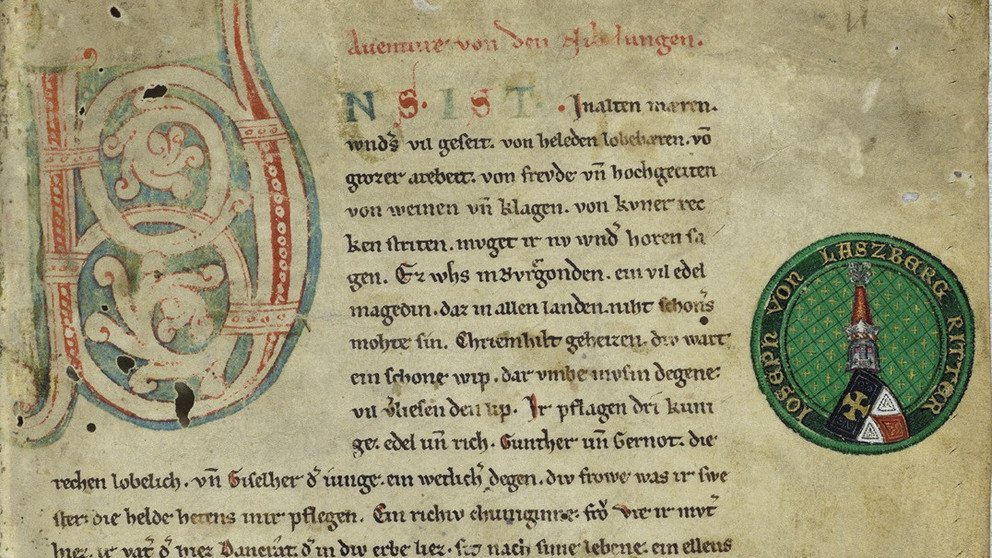 Auenture von den Nibelungen.
UNS. IST. Inalten mæren.
wnds vil geseit. von heleden lobebæren. võ
grozer arebeit. von frevde vn̄ hochgeciten
von weinen vn̄ klagen. von kvner rec
ken striten. mvget ir nv wnd̕ horen sa
gen. Ez whs in Bvrgonden. ein vil edel
magedin. daz in allen landen. niht schon̕s
mohte sin. Chriemhilt geheizen. div wart
ein schone wip. dar vmbe mvsin degene
vil v̕liesen den lip. Ir pflagen dri kuni
ge. edel vn̄ rich. Gunther vn̄ Gernot. die
rechen lobelich. vn̄ Giselher d̕ iunge. ein wetlich̕ degen. div frowe was ir swe
ster. die helde hetens inir pflegen. Ein richiv chuniginne. frŏ Vte ir mvt̕
hiez. ir vat̕ d̕ hiez Dancrat. d̕ in div erbe liez. sit nach sime lebene. ein ellens
IOSEPH VON LASZBERG RITTER